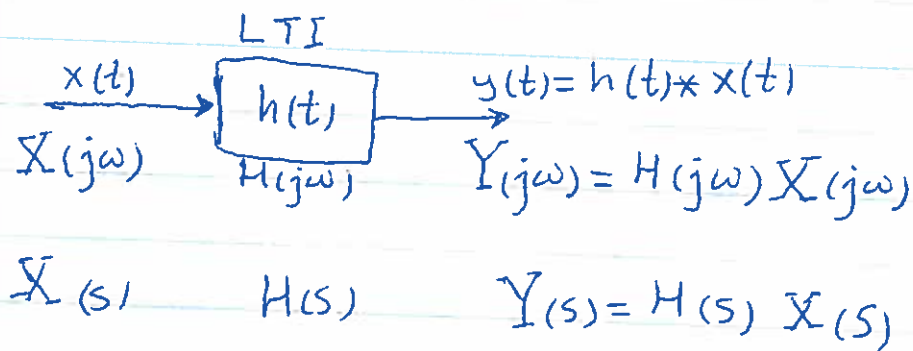 LTI
x(t) h(t) y(t)=h(t)* x(t)
X(jω) H(jω) Y(jω) = H(jω) X(jω)
X(s) H(s) Y(s) = H(s) X(s)